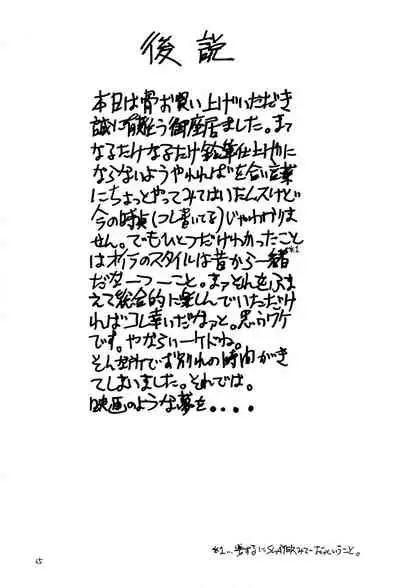 後説
本日は骨お買い上げいただき
誠に有難う御座居ました。まて
なるだけなるだけ鉛筆仕上げに
ならないようやれればを合い言葉
にちょっとやってみてはいたんスけど
今の時点(コレ書いてる)じゃわかりま
せん。でもひとつだけわかったこと
はオイラのスタイルは昔から一緒※1
だなーつーこと。まァそれをふま
えて総合的に楽しんでいただけ
ればコレ幸いだなァと。思うワケ
です。やならいーケドね。
そん所でお別れの時間がき
てしまいました。それでは。
映画のような夢を....
※1...要するに
ということ。
15